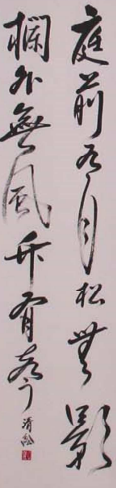 庭前有月松無影
欄外無風竹有聲